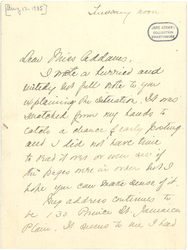 [Aug 13, 1935]
Tuesday noon.
Dear Miss Addams,
I wrote a hurried and
not full note to you
explaining the situation. It was
snatched from my hands to
catch a chance of early posting
and I did not have time
to read it over or even see if
the pages were in order but I
hope you can make sense of it.
My address continues to
be 130 Prince St. Jamaica
Plain. It seems to me I had